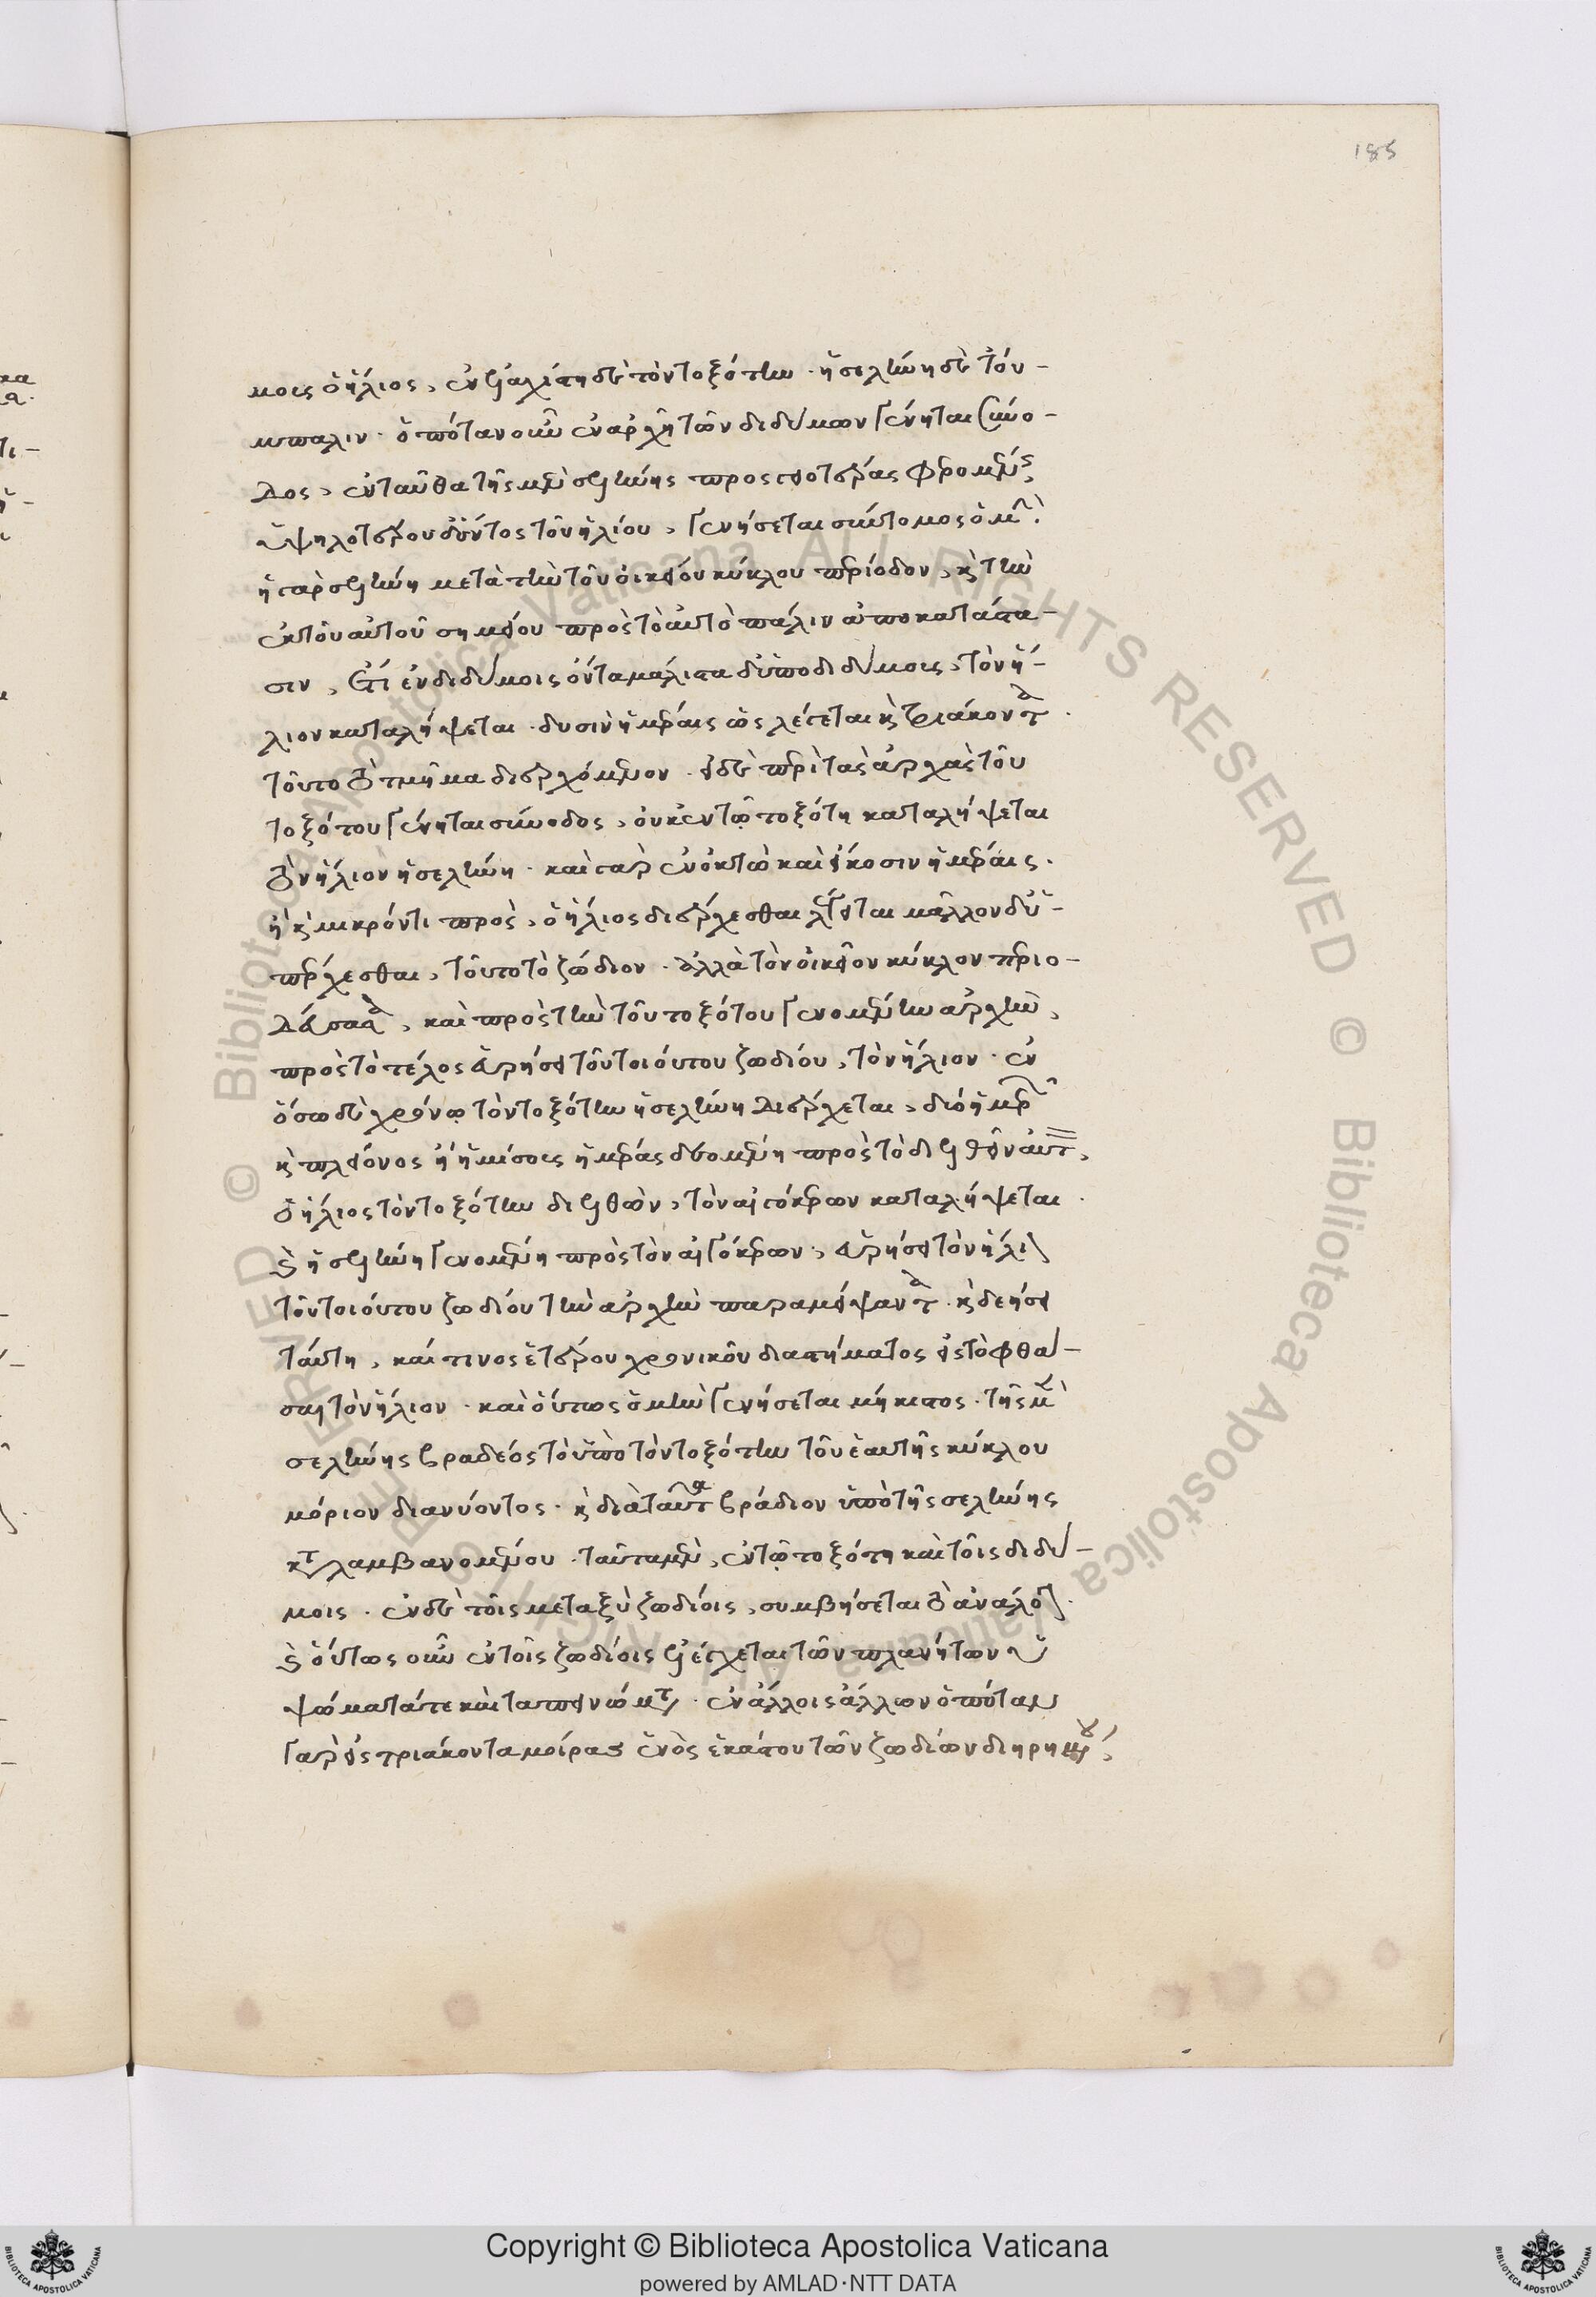 185
μοις ὁ ἥλιος, ἐν ἐλαχίστη δὲ τὸν τοξότην. ἡ σελήνη δὲ τοὐν-
μπαλιν. ὁπόταν οὖν ἐν ἀρχῇ τῶν διδύμων γένηται σύνο-
δος, ἐνταῦθα τῆς μὲν σελήνης προσγειοτέρας φερομένης
ὑψηλοτέρου δ' ὄντος τοῦ ἡλίου, γενήσεται σύντομος ὁ μήν.
ἡ γὰρ σελήνη μετὰ τὴν τοῦ οἰκείου κύκλου περίοδον, καὶ τὴν
ἐκ τοῦ αὐτοῦ σημείου πρὸς τὸ αὐτὸ πάλιν ἀποκατάστα-
σιν, ἔτι ἐν διδύμοις ὄντα μάλιστα δ' ὑπὸ διδύμοις, τὸν ἥ-
λιον καταλήψεται. δυσὶν ἡμέραις ὡς λέγεται καὶ τριάκοντα
τοῦτο τὸ τμῆμα διερχόμενον. εἰ δὲ περὶ τὰς ἀρχὰς τοῦ
τοξότου γένηται σύνοδος, οὐκ ἐν τῷ τοξότη καταλήψεται
τὸν ἥλιον ἡ σελήνη. καὶ γὰρ ἐν ὀκτὼ καὶ εἴκοσιν ἡμέραις.
ἢ καὶ μικρόν τι πρὸς, ὁ ἥλιος διέρχεσθαι λέγεται μᾶλλον δ' ὑ-
πέρχεσθαι, τοῦτο τὸ ζώδιον. ἀλλὰ τὸν οἰκεῖον κύκλον περιο-
δεύσασα, καὶ πρὸς τὴν τοῦ τοξότου γενομένην ἀρχὴν,
πρὸς τὸ τέλος εὑρήσει τοῦ τοιούτου ζωδίου, τὸν ἥλιον. ἐν
ὅσω δὲ χρόνῳ τὸν τοξότην ἡ σελήνη διέρχεται, δύο ἡμερῶν
καὶ πλείονος ἢ ἡμίσους ἡμέρας δεομένη πρὸς τὸ διελθεῖν αὐτὸν,
ὁ ἥλιος τὸν τοξότην διελθὼν, τὸν αἰγόκερων καταλήψεται.
καὶ ἡ σελήνη γενομένη πρὸς τὸν αἰγόκερων, εὑρήσει τὸν ἥλιον
τοῦ τοιούτου ζωδίου τὴν ἀρχὴν παραμείψαντα. καὶ δεήσει
ταύτη, καί τινος ἑτέρου χρονικοῦ διαστήματος εἰς τὸ φθά-
σαι τὸν ἥλιον. καὶ οὕτως ὁ μὴν γενήσεται μήκιστος. τῆς μὲν
σελήνης βραδέως τὸ ὑπὸ τὸν τοξότην τοῦ ἑαυτῆς κύκλου
μόριον διανύοντος. καὶ διὰ ταῦτα βράδιον ὑπὸ τῆς σελήνης
καταλαμβανομένου. ταῦτα μὲν, ἐν τῷ τοξότη καὶ τοῖς διδύ-
μοις. ἐν δὲ τοῖς μεταξὺ ζωδίοις, συμβήσεται τὸ ἀνάλογον.
καὶ οὕτως οὖν ἐν τοῖς ζωδίοις ἐλέγχεται τῶν πλανήτων ὑ
ψώματά τε καὶ ταπεινώματα. ἐν ἄλλοις ἄλλων ὁπόταν
γὰρ εἰς τριάκοντα μοίρας ἑνὸς ἑκάστου τῶν ζωδίων διηρημένου,
Copyright © Biblioteca Apostolica Vaticana
powered by AMLAD·NTT DATA